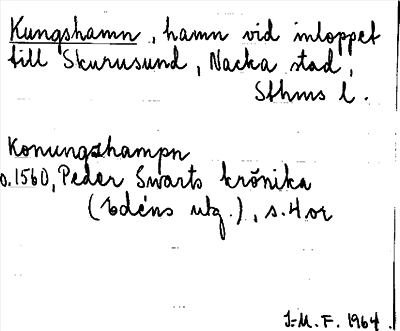 Kungshamn, hamn vid inloppet
till Skurusund, Nacka stad,
Sthms l.
Konungzhampn
o. 1560, Peder Swarts krönika
(Edéns utg.), s. 4 or
I-M. F. 1964.